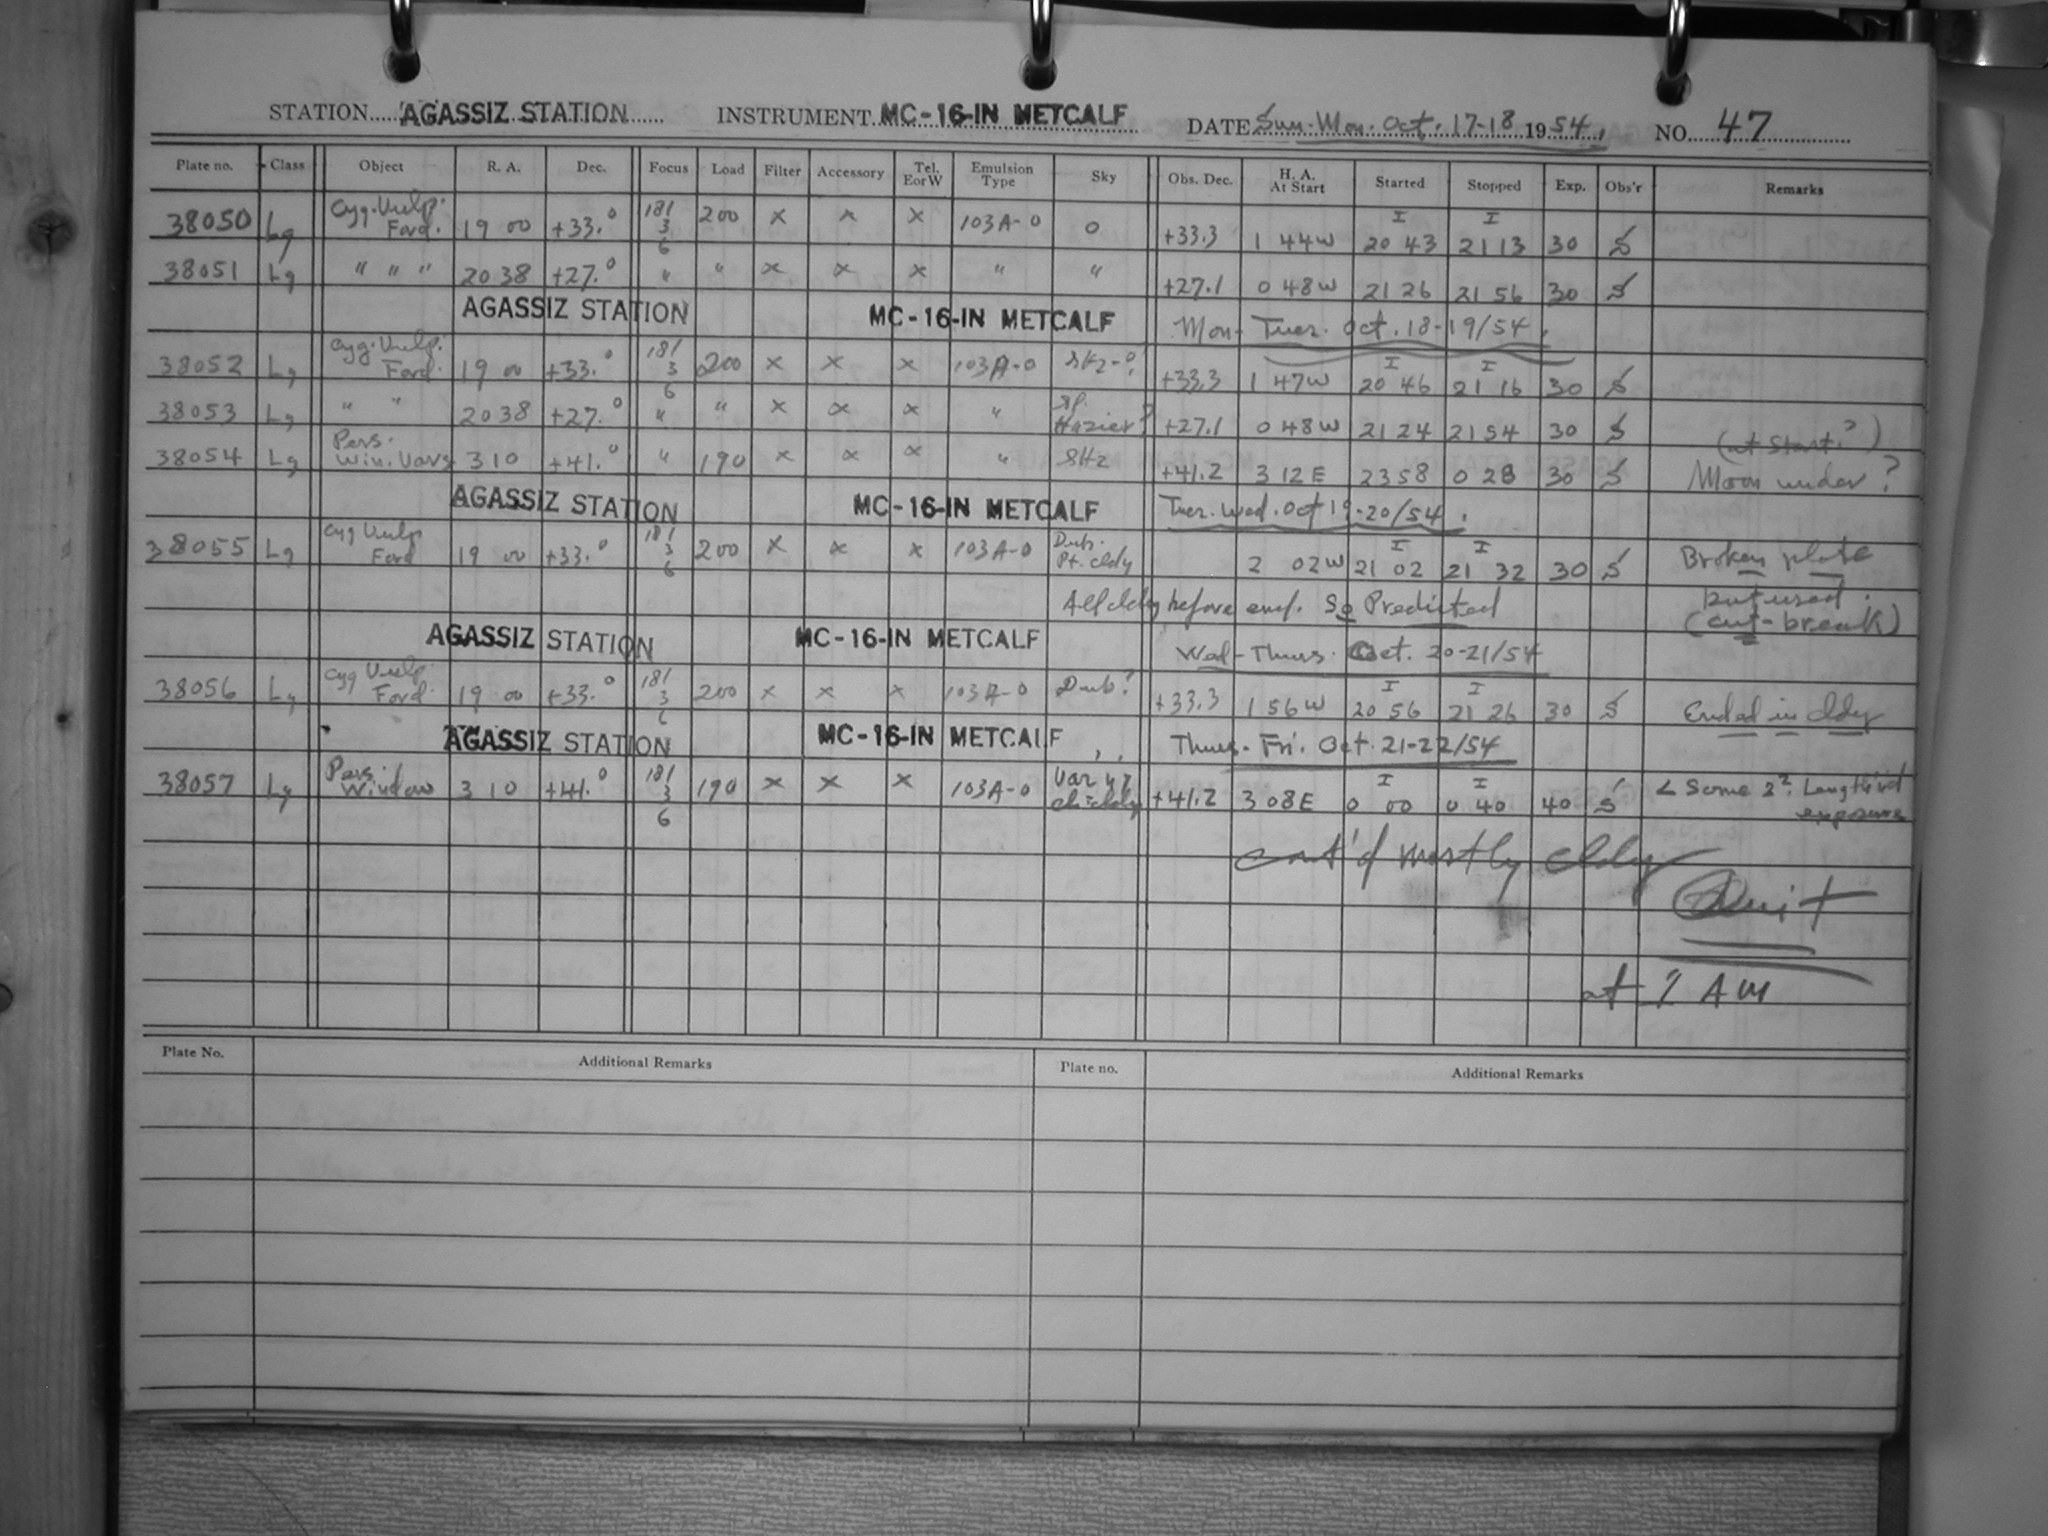 STATION AGASSIZ STATION INSTRUMENT MC-16-IN METCALF DATE Sun-Mon. Oct. 17-18 1954. NO. 47
Plate no. Class Object R. A. Dec. Focus Load Filter Accessory Tel. E or W Emulsion Type Sky Obs. Dec. H. A. At Start Started Stopped Exp. Obs'r Remarks
38050 Lg Cyg. Vulp. Ford. 19 00 +33.° 181 3 6 200 x x x 103A-O O +33.3 1 44W I 20 43 I 21 13 30 S
38051 Lg " " " 20 38 +27.° " " x x x " " +27.1 0 48W 21 26 21 56 30 S
AGASSIZ STATION MC-16-IN METCALF Mon-Tues. Oct. 18-19/54.
38052 Lg Cyg. Vulp. Ford. 19 00 +33.° 181 3 6 200 x x x 103A-O +33.3 1 47W I 20 46 I 21 16 30 S
38053 Lg " " 20 38 +27.° " " x x x " Sl. Hazier? +27.1 0 48W 21 24 21 54 30 S (at start.?)
38054 Lg Pers. Win. Vars 3 10 +41.° " 190 x x x " SHz +41.2 3 12E 23 58 0 28 30 S Moon under?
AGASSIZ STATION MC-16-IN METCALF Tues. Wed. Oct 19-20/54.
38055 Lg Cyg Vulp Ford 19 00 +33.° 181 3 6 200 x x x 103A-O Dub. Pt. cldy 2 02W I 21 02 I 21 32 30 S Broken plate
All cldy before end. So Predicted but used.
(cut-break)
AGASSIZ STATION MC-16-IN METCALF Wed-Thurs. Oct. 20-21/54
38056 Lg Cyg Vulp. Ford. 19 00 +33.° 181 3 6 200 x x x 103A-O Dub! +33.3 1 56W I 20 56 I 21 26 30 S Ended in cldy
AGASSIZ STATION MC-16-IN METCALF Thurs-Fri. Oct. 21-22/54
38057 Lg Pers. Window 3 10 +41.° 181 3 6 190 x x x 103A-O +41.2 3 08E I 0 00 I 0 40 40 S < Some Length'n'd exposure
cont'd mostly cldy
Quit
at AM
Plate No. Additional Remarks Plate no. Additional Remarks